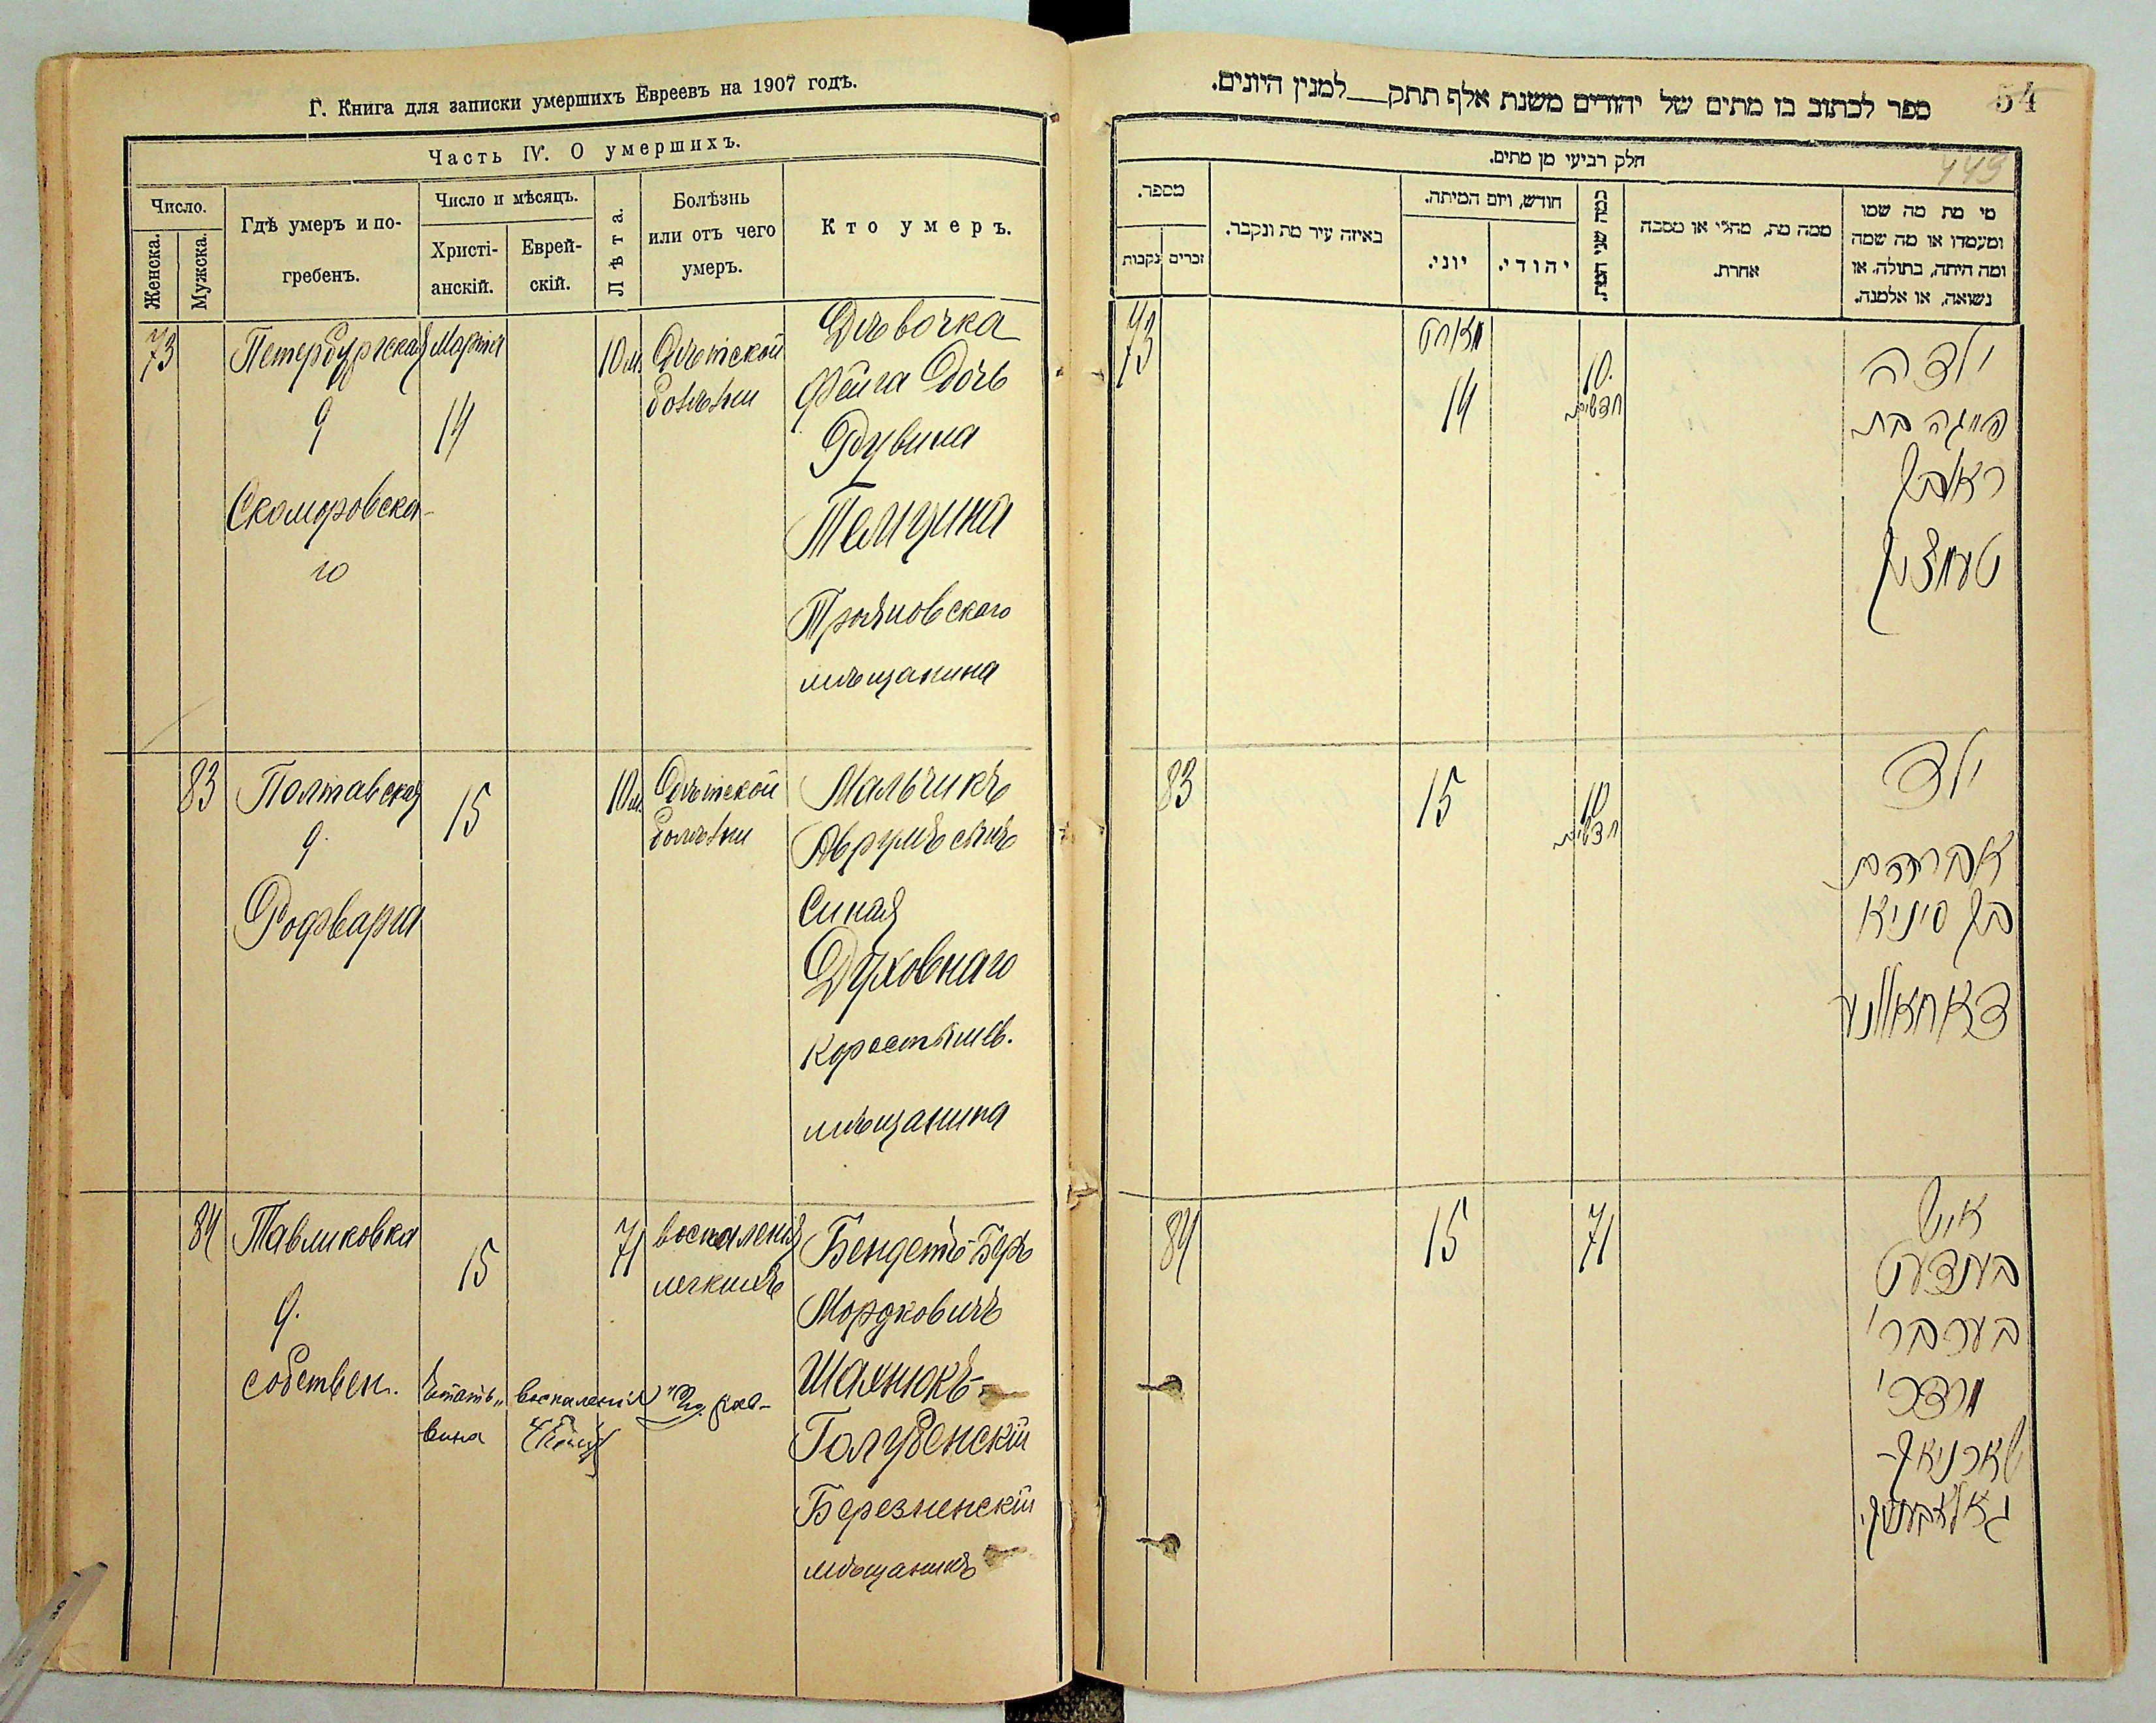 Г. Книга для записки умершихъ Евреевъ на 1907 годъ.
Часть IV. О умершихъ.
Число.
Женска.
Мужска.
Гдѣ умеръ и по-
гребенъ.
Число и мѣсяцъ.
Христі-
анскій.
Еврей-
скій.
Лѣта.
Болѣзнь
или отъ чего
умеръ.
Кто умеръ.
73
Петербургская
9
Скоморовска-
го
Марта
14
10 м.
Дѣтской
болѣзни
Дѣвочка
Фейга дочь
Рувина
Темцина
Трояновского
мѣщанина
83
Полтавская
9.
Рофварга
15
10 м.
Дѣтской
болѣзни
Мальчикъ
Аврумъ сынъ
Синая
Духовнаго
Коростышев.
мѣщанина
84
Павликовка
9.
собствен.
15
71
воспаленія
легкихъ
Бендетъ-Беръ
Мордковичъ
Шаянюкъ-
Голубенскій
Березненскій
мѣщанинъ
Читать„ воспаленія" Ио. рав-
вина
54
449
ספר לכתוב בו מתים של יהודים משנת אלף תתק__למנין היונים.
חלק רביעי מן מתים.
מספר.
זכרים
נקבות
באיזה עיר מת ונקבר.
חודש, ויום המיתה.
יוני.
יהודי.
כמה שני המת.
ממה מת, מחלי או מסבה
אחרת.
מי מת מה שמו
ומעמדו או מה שמה
ומה היתה, בתולה. או
נשואה, או אלמנה.
73
מארט
14
10.
חדשים
ילדה
פייגה בת
ראובן
טעמצין
83
15
10
חדשים
ילד
אברהם
בן סיניא
דאחאוונע
84
15
71
איש
בענדעט
בער בר'
מרדכי
גאלובענסקי